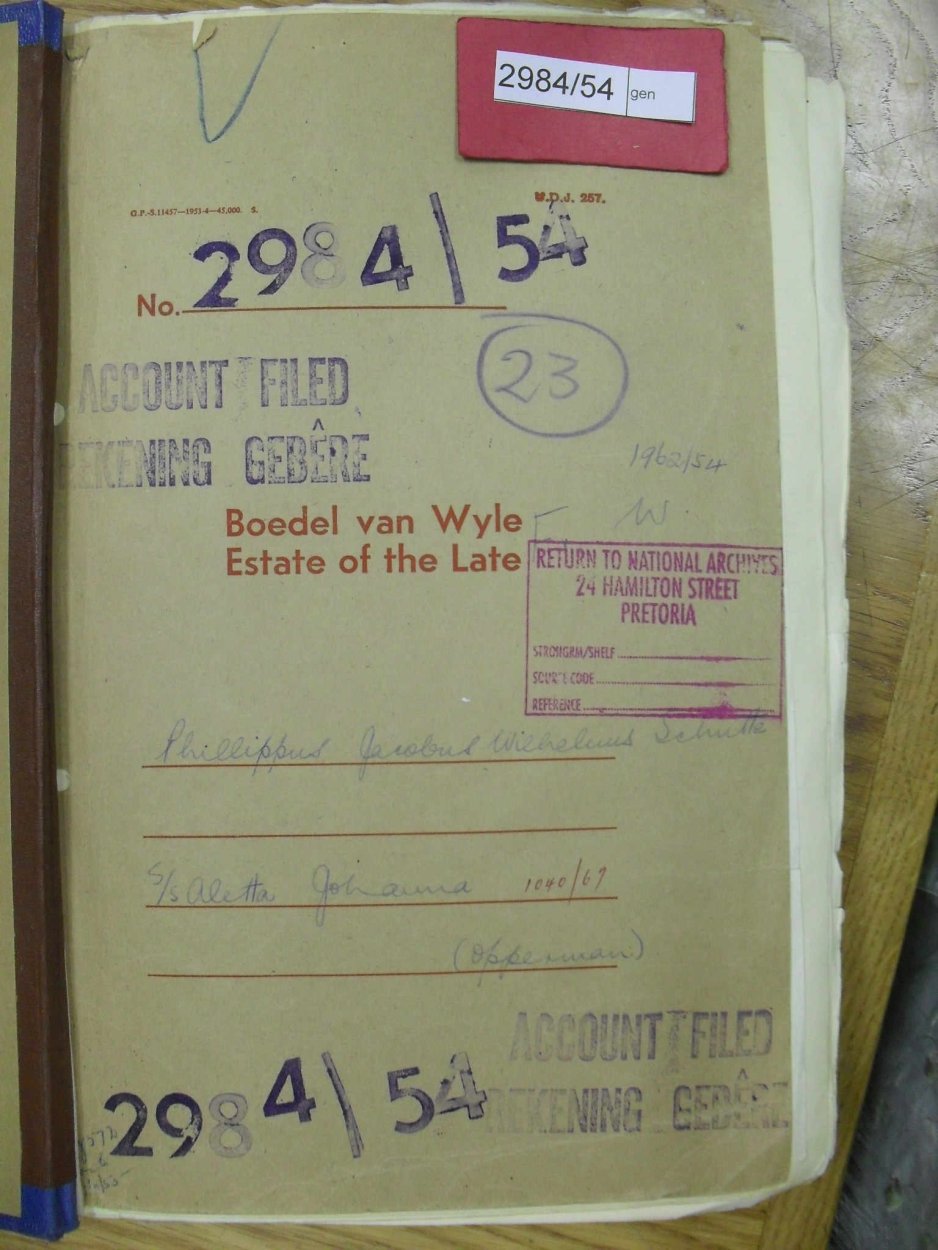 2984/54 gen
G.P.-S.11457—1953-4—45,000. S.
U.D.J. 257.
No. 2984/54
23
ACCOUNT FILED
REKENING GEBÊRE
1962/54
W.
Boedel van Wyle
Estate of the Late
RETURN TO NATIONAL ARCHIVES
24 HAMILTON STREET
PRETORIA
STRONGRM/SHELF
SOURCE CODE
REFERENCE
Phillippus Jacobus Wilhelmus Schutte
S/s Aletta Johanna 1040/69
(Opperman)
ACCOUNT FILED
REKENING GEBÊRE
2984/54